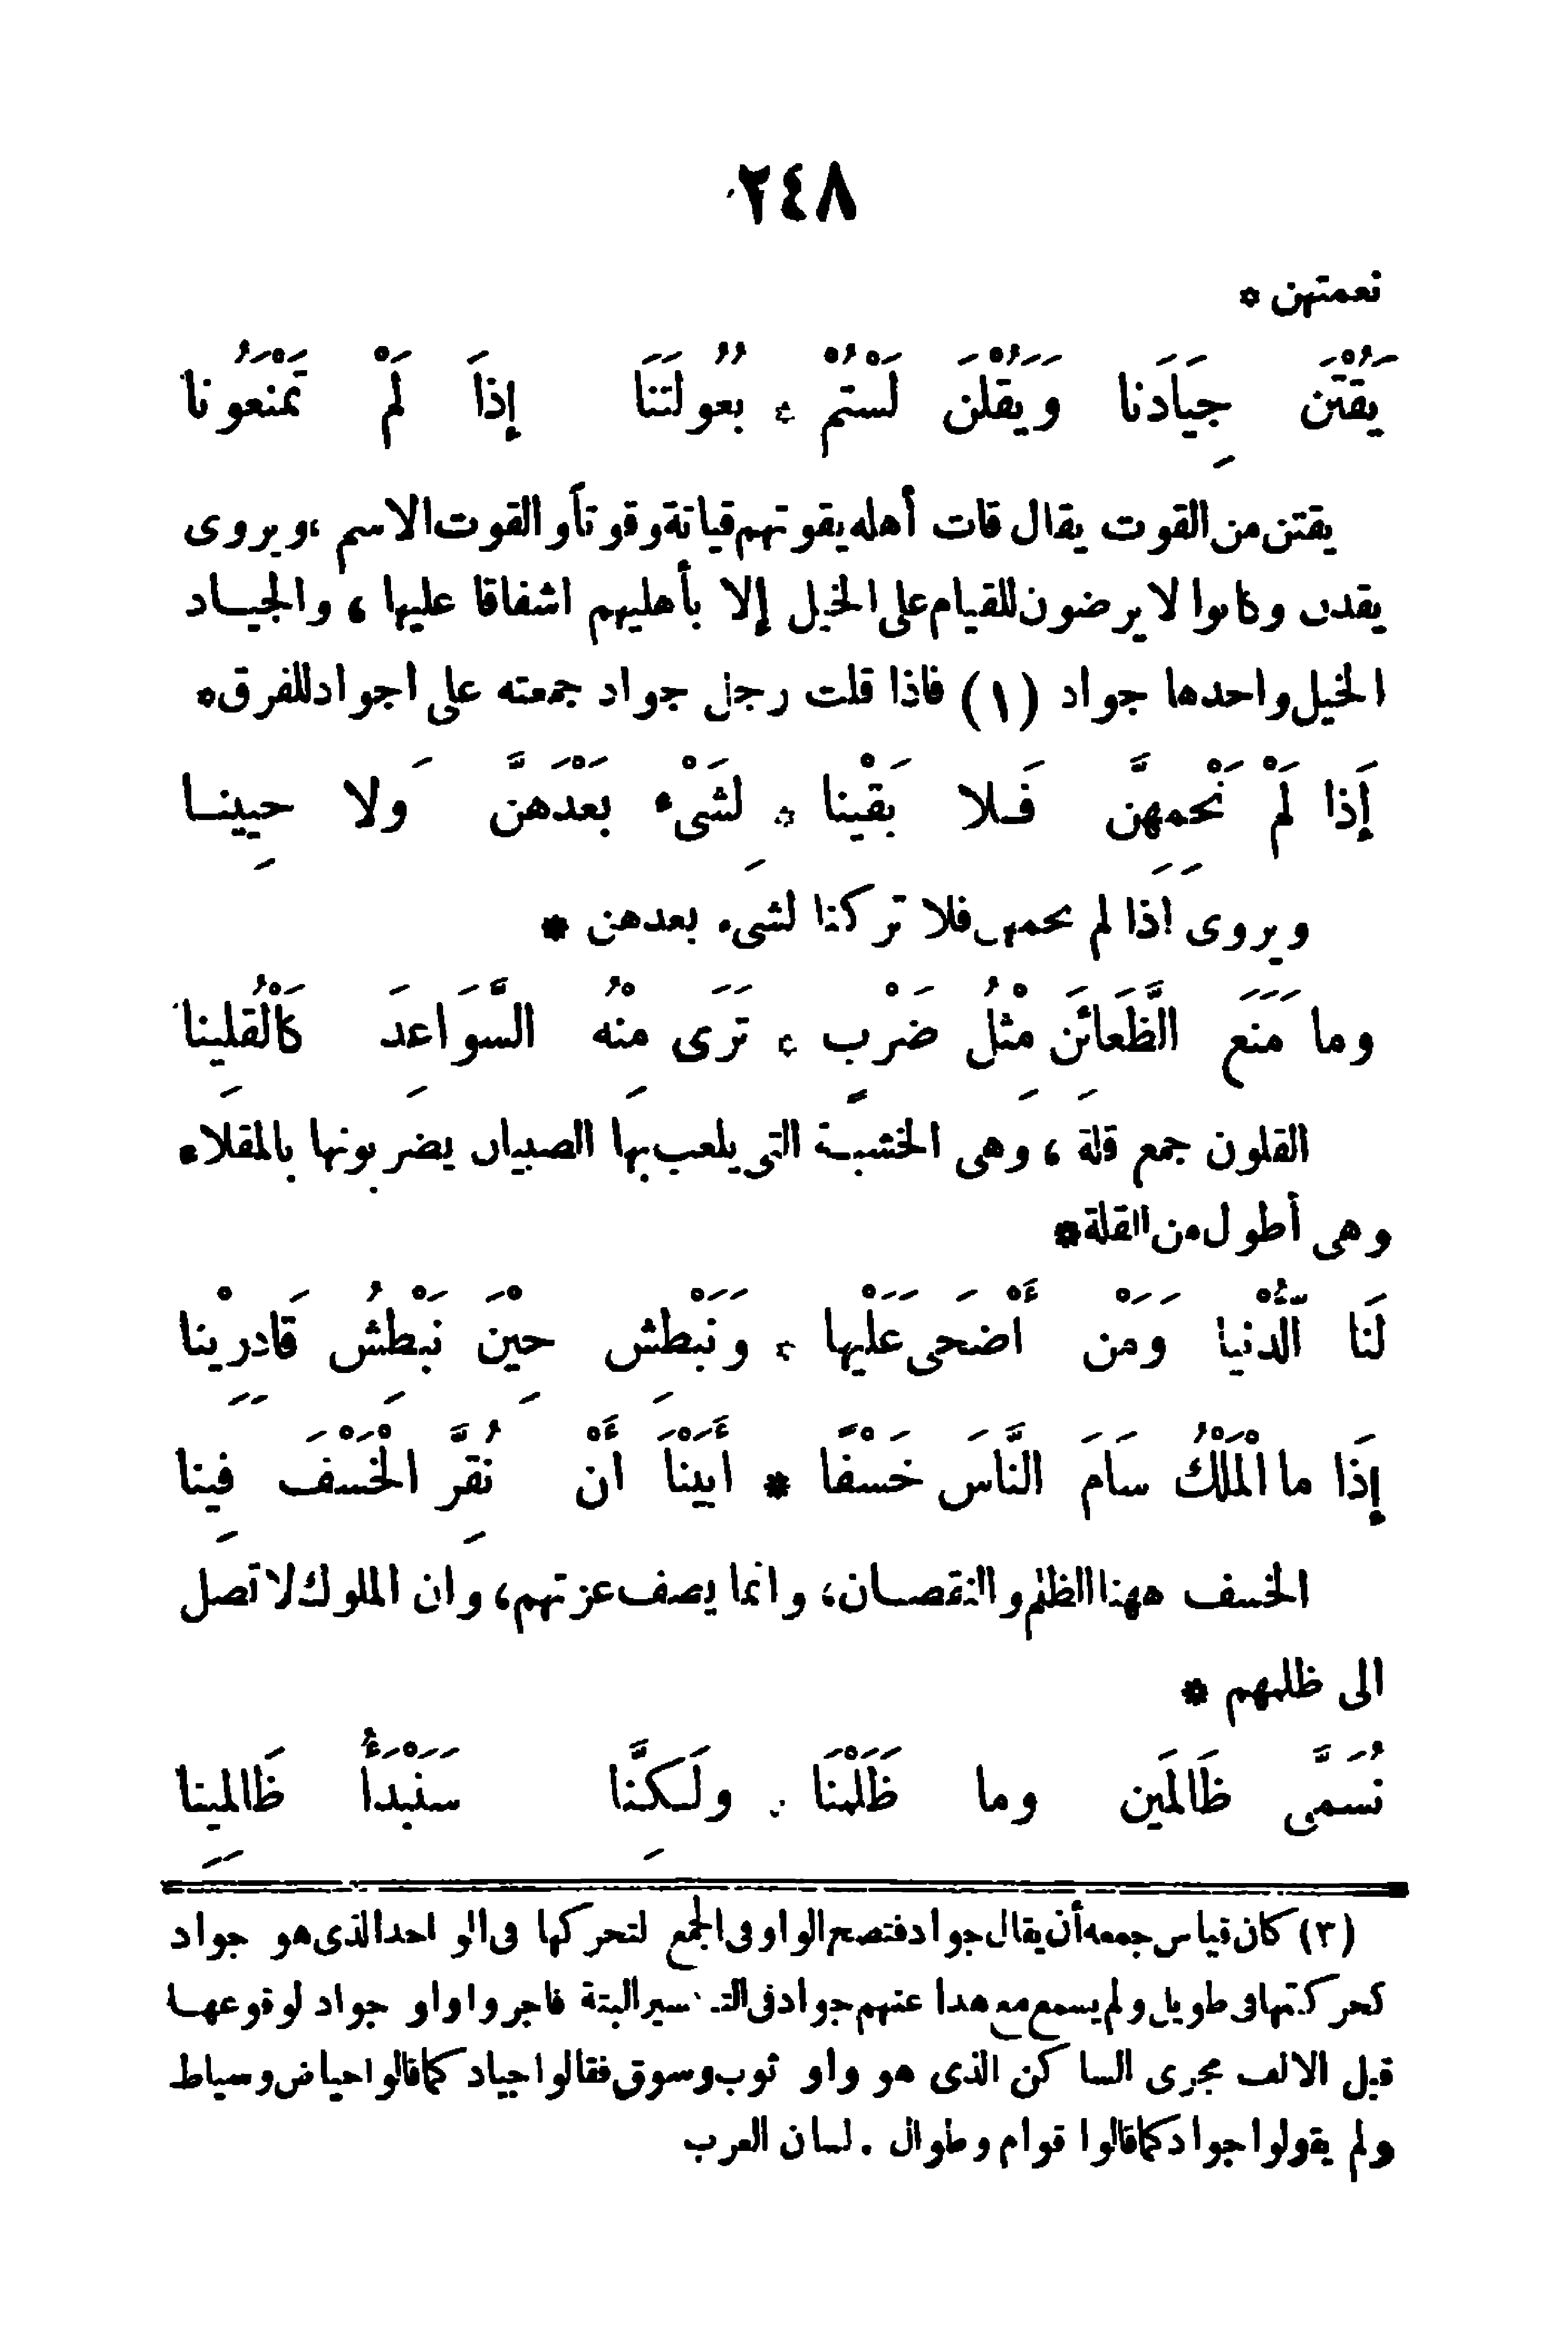 ٢٤٨
نعمتهن *
يَقُتْنَ جِيَادَنا وَيَقُلْنَ لَسْتُمْ * بُعُولَتَنَا إِذَا لَمْ تَمْنَعُونا
يقتن من القوت يقال قات أهله يقوتهم قياتة وقوتاً والقوت الاسم ، ويروى
يقدن وكانوا لا يرضون للقيام على الخيل إلا بأهليهم اشفاقا عليها ، والجياد
الخيل واحدها جواد (١) فاذا قلت رجل جواد جمعته على اجواد للفرق *
إِذا لَمْ نَحْمِهِنَّ فَلا بَقَيْنا * لِشَىْء بَعْدَهَنَّ وَلا حِيينا
ويروى اذا لم نحمهن فلا تركنا لشىء بعدهن *
وما مَنَعَ الظَّعَائِنَ مِثْلُ ضَرْبٍ * تَرَى مِنْهُ السَّوَاعِدَ كَالْقُلِينا
القلون جمع قلة ، وهى الخشبة التى يلعب بها الصبيان يضربونها بالمقلاء
وهى أطول من القلة *
لَنا الدُّنْيا وَمَنْ أَضْحَى عَلَيْها * وَنَبْطِش حِيْنَ نَبْطِشُ قَادِرِيْنا
إِذَا ما الْمَلْكُ سَامَ النَّاسَ خَسْفًا * أَبَيْنَا أَنْ نُقِرَّ الْخَسْفَ فِينا
الخسف ههنا الظلم والنقصان ، وانما يصف عزتهم ، وان الملوك لا تصل
الى ظلمهم *
نُسَمَّى ظَالَمِين وما ظَلَمْنَا * ولَكِنَّا سَنَبْدَأُ ظَالِمِينا
(٣) كان قياس جمعه أن يقال جواد فتصح الواو فى الجمع لتحركها فى الواحد الذى هو جواد
كحركتها فى طويل ولم يسمع مع هذا عنهم جواد فى التكسير البتة فاجروا واو جواد لوقوعها
قبل الالف مجرى الساكن الذى هو واو ثوب وسوق فقالوا جياد كما قالوا حياض وسياط
ولم يقولوا جواد كما قالوا قوام وطوال . لسان العرب